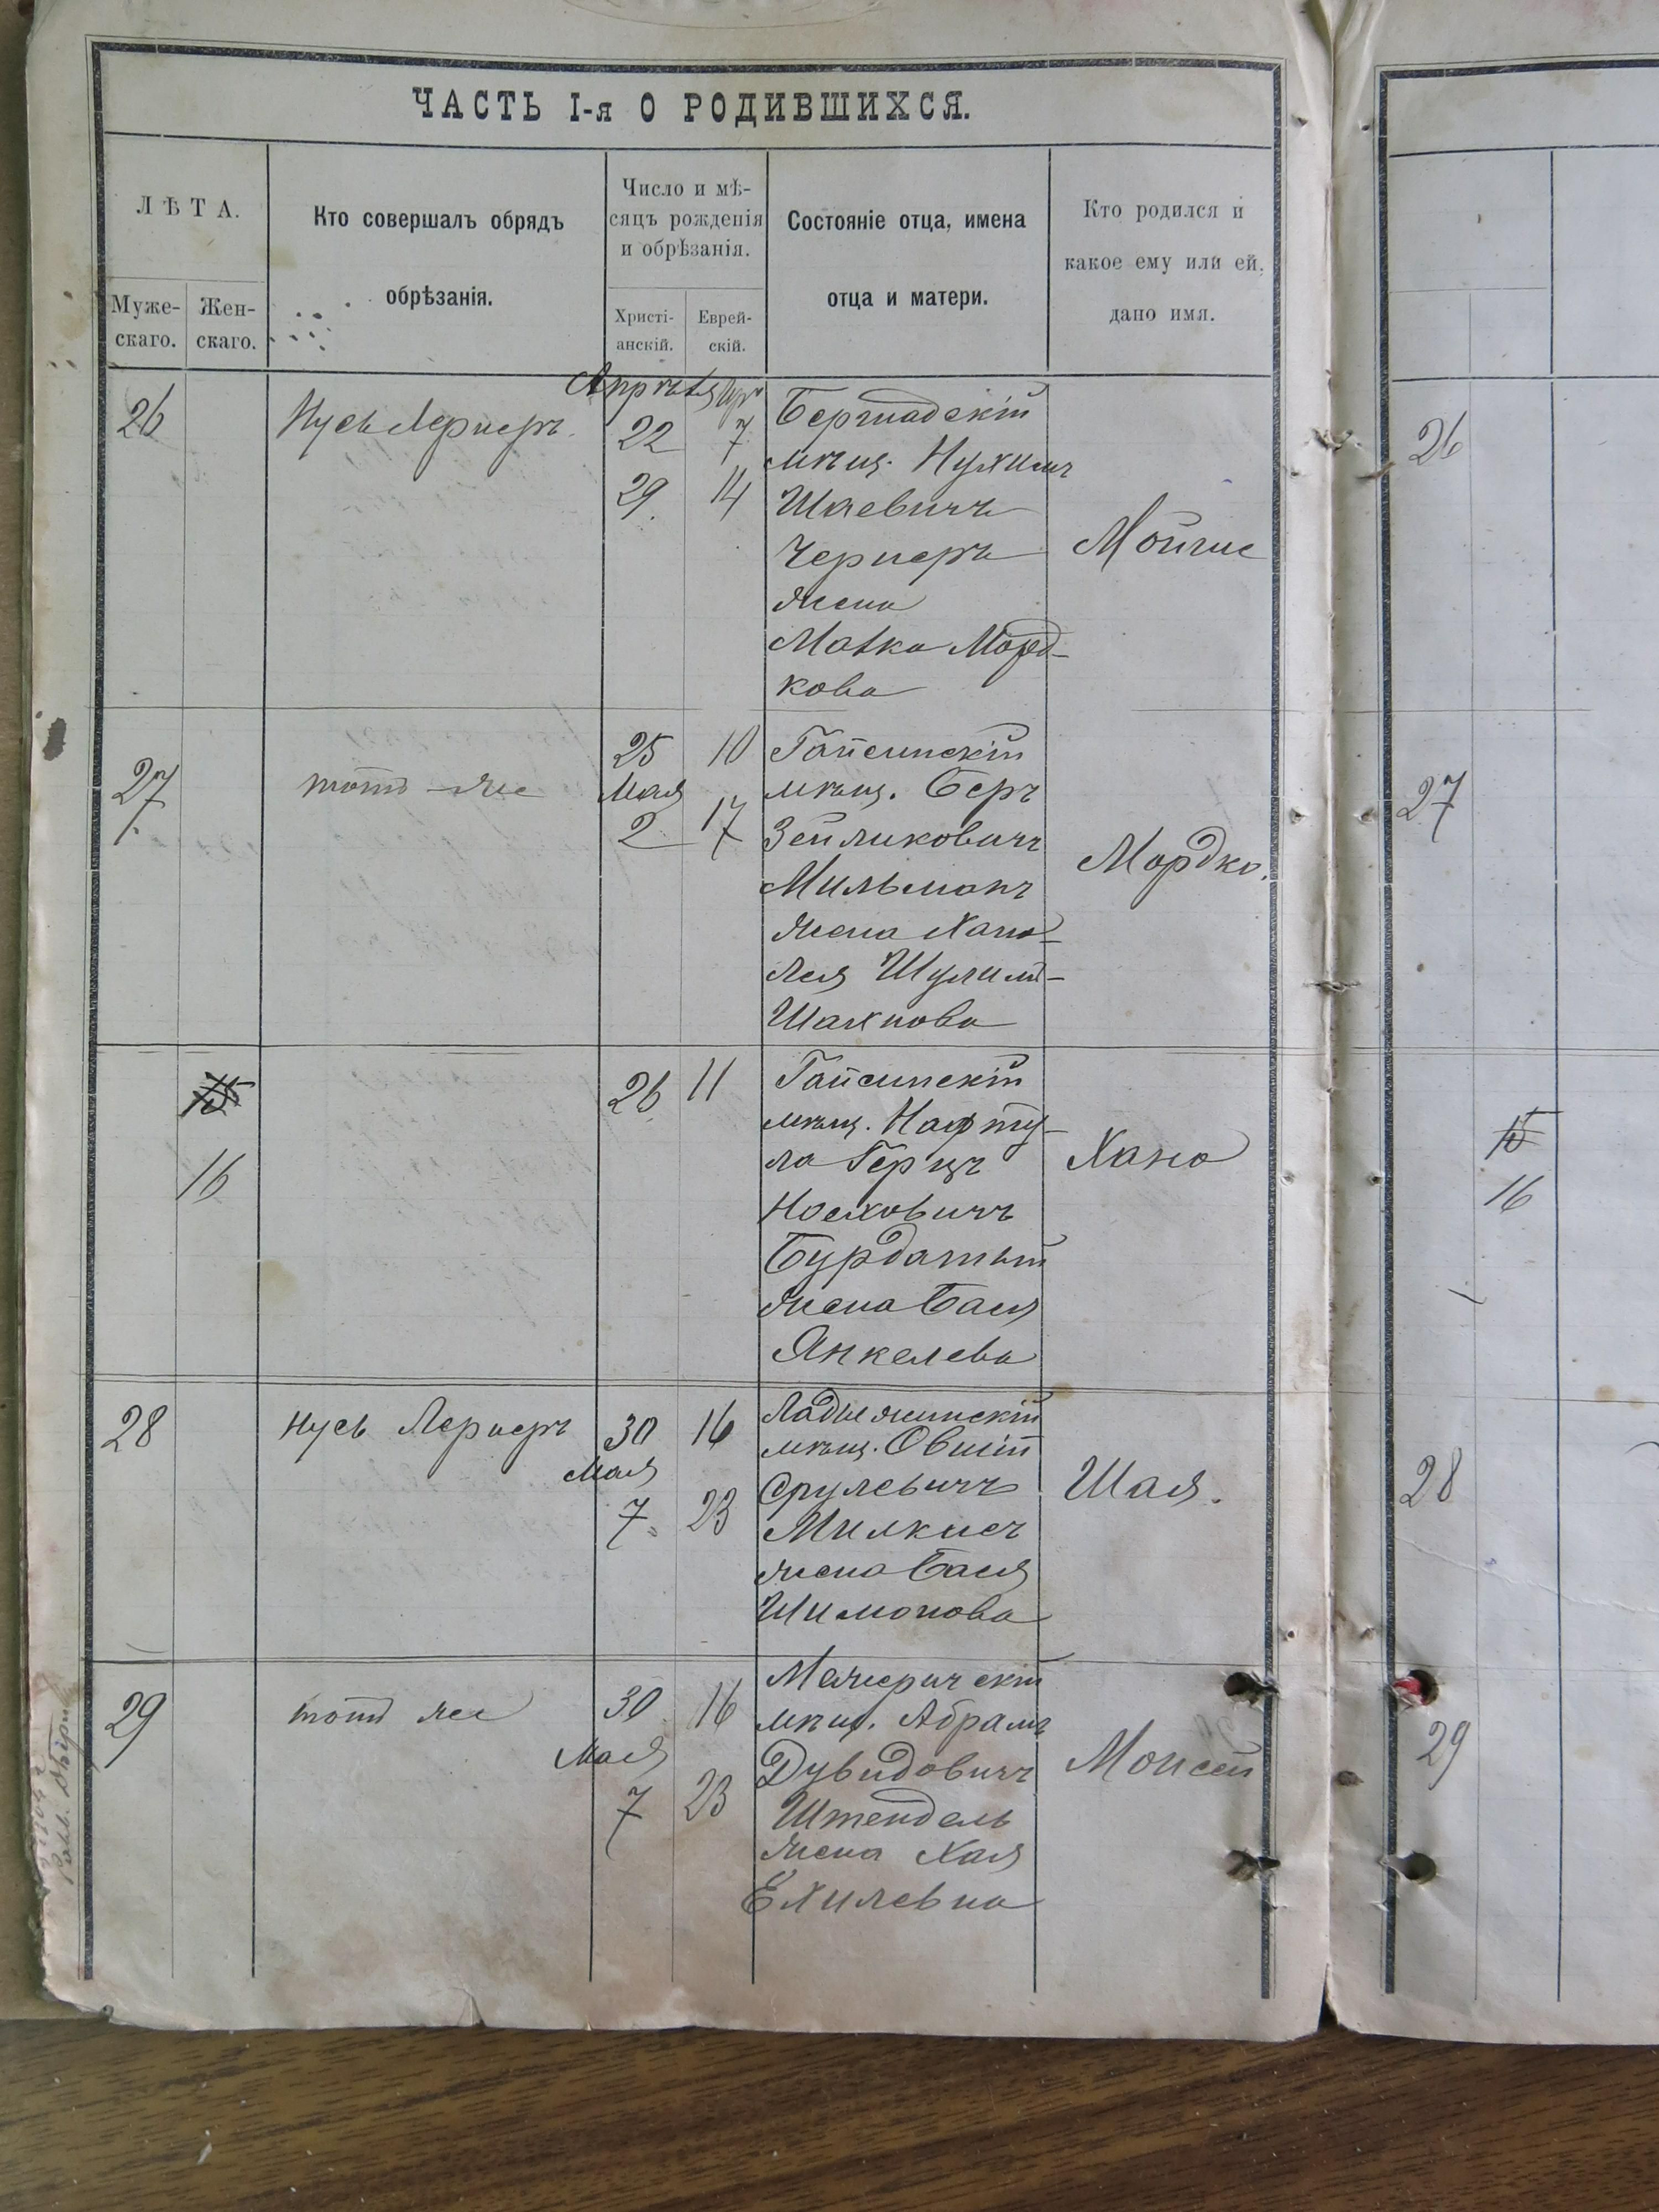 ЧАСТЬ I-я О РОДИВШИХСЯ.
ЛѢТА.
Муже-
скаго.
Жен-
скаго.
Кто совершалъ обрядъ
обрѣзанія.
Число и мѣ-
сяцъ рожденія
и обрѣзанія.
Христі-
анскій.
Еврей-
скій.
Состояніе отца, имена
отца и матери.
Кто родился и
какое ему или ей,
дано имя.
26
Нусь Лернеръ
Апрѣля
22 7
29. 14
Бершадскій
мѣщ. Нухимъ
Шаевичъ
Чернеръ
жена
Малка Морд-
кова
Мойше
26
27
тотъ-же
25 10
Мая
2 17
Гайсинскій
мѣщ. Беръ
Зейликовичъ
Мильманъ
жена Хана-
Лея Шулим-
Шахнова
Мордко.
27
15
16
26 11
Гайсинскій
мѣщ. Нафту-
ла Герцъ
Носховичъ
Бурдатый
жена Бася
Янкелева
Хана
15
16
28
Нусь Лернеръ
30 16
Мая
7 23
Ладыжинскій
мѣщ. Овшій
Срулевичъ
Милкисъ
жена Бася
Шимонова
Шая.
28
29
тотъ же
30 16
Мая
7 23
Межеричскій
мѣщ. Абрамъ
Дувидовичъ
Штендель
жена Хая
Ехилевна
Моисей
29